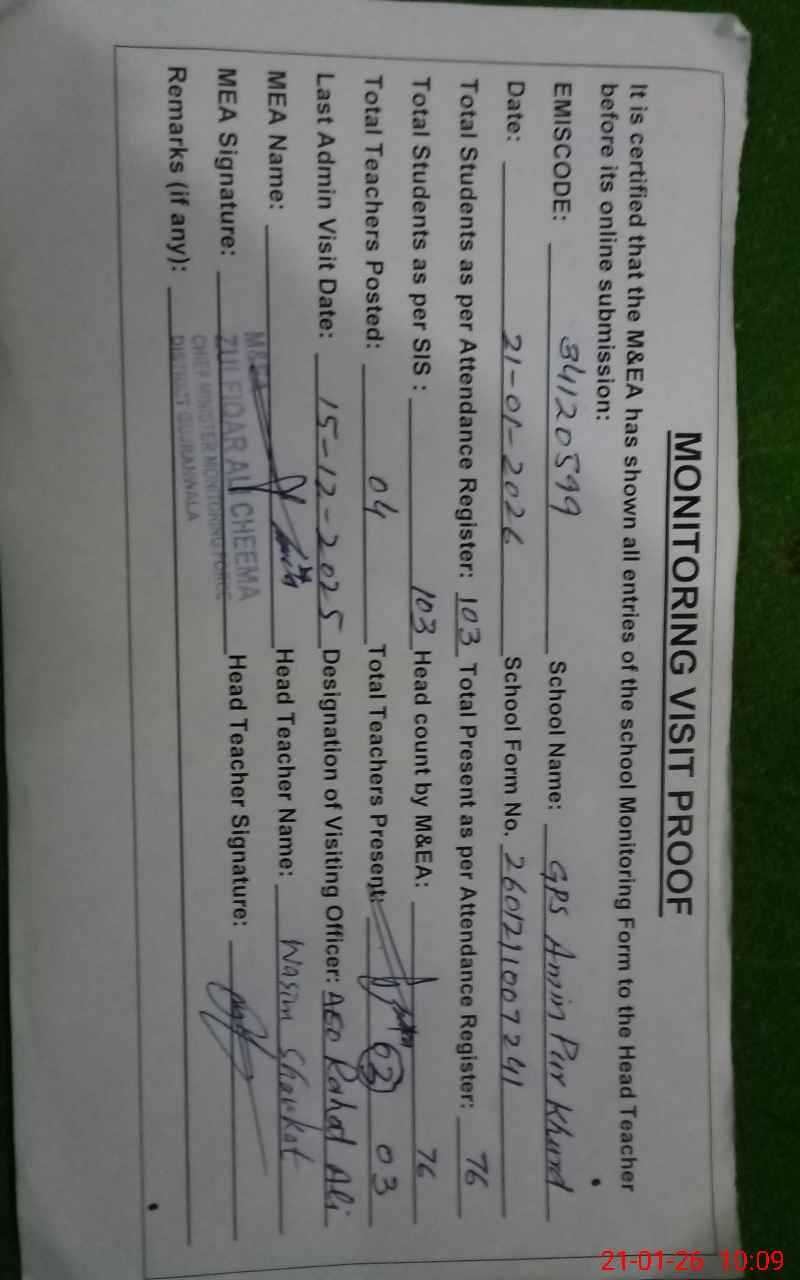 MONITORING VISIT PROOF
It is certified that the M&EA has shown all entries of the school Monitoring Form to the Head Teacher
before its online submission:
EMISCODE: 34120599 School Name: GPS Amin Pur Khurd
Date: 21-01-2026 School Form No. 2601211007241
Total Students as per Attendance Register: 103 Total Present as per Attendance Register: 76
Total Students as per SIS : 103 Head count by M&EA: 76
Total Teachers Posted: 04 Total Teachers Present: 03
Last Admin Visit Date: 15-12-2025 Designation of Visiting Officer: AEO Rahat Ali
MEA Name: Head Teacher Name: Wasim Shaukat
MEA Signature: Head Teacher Signature:
Remarks (if any):
M&EA
ZULFIQAR ALI CHEEMA
CHIEF MINISTER MONITORING FORCE
DISTRICT GUJRANWALA
21-01-26 10:09